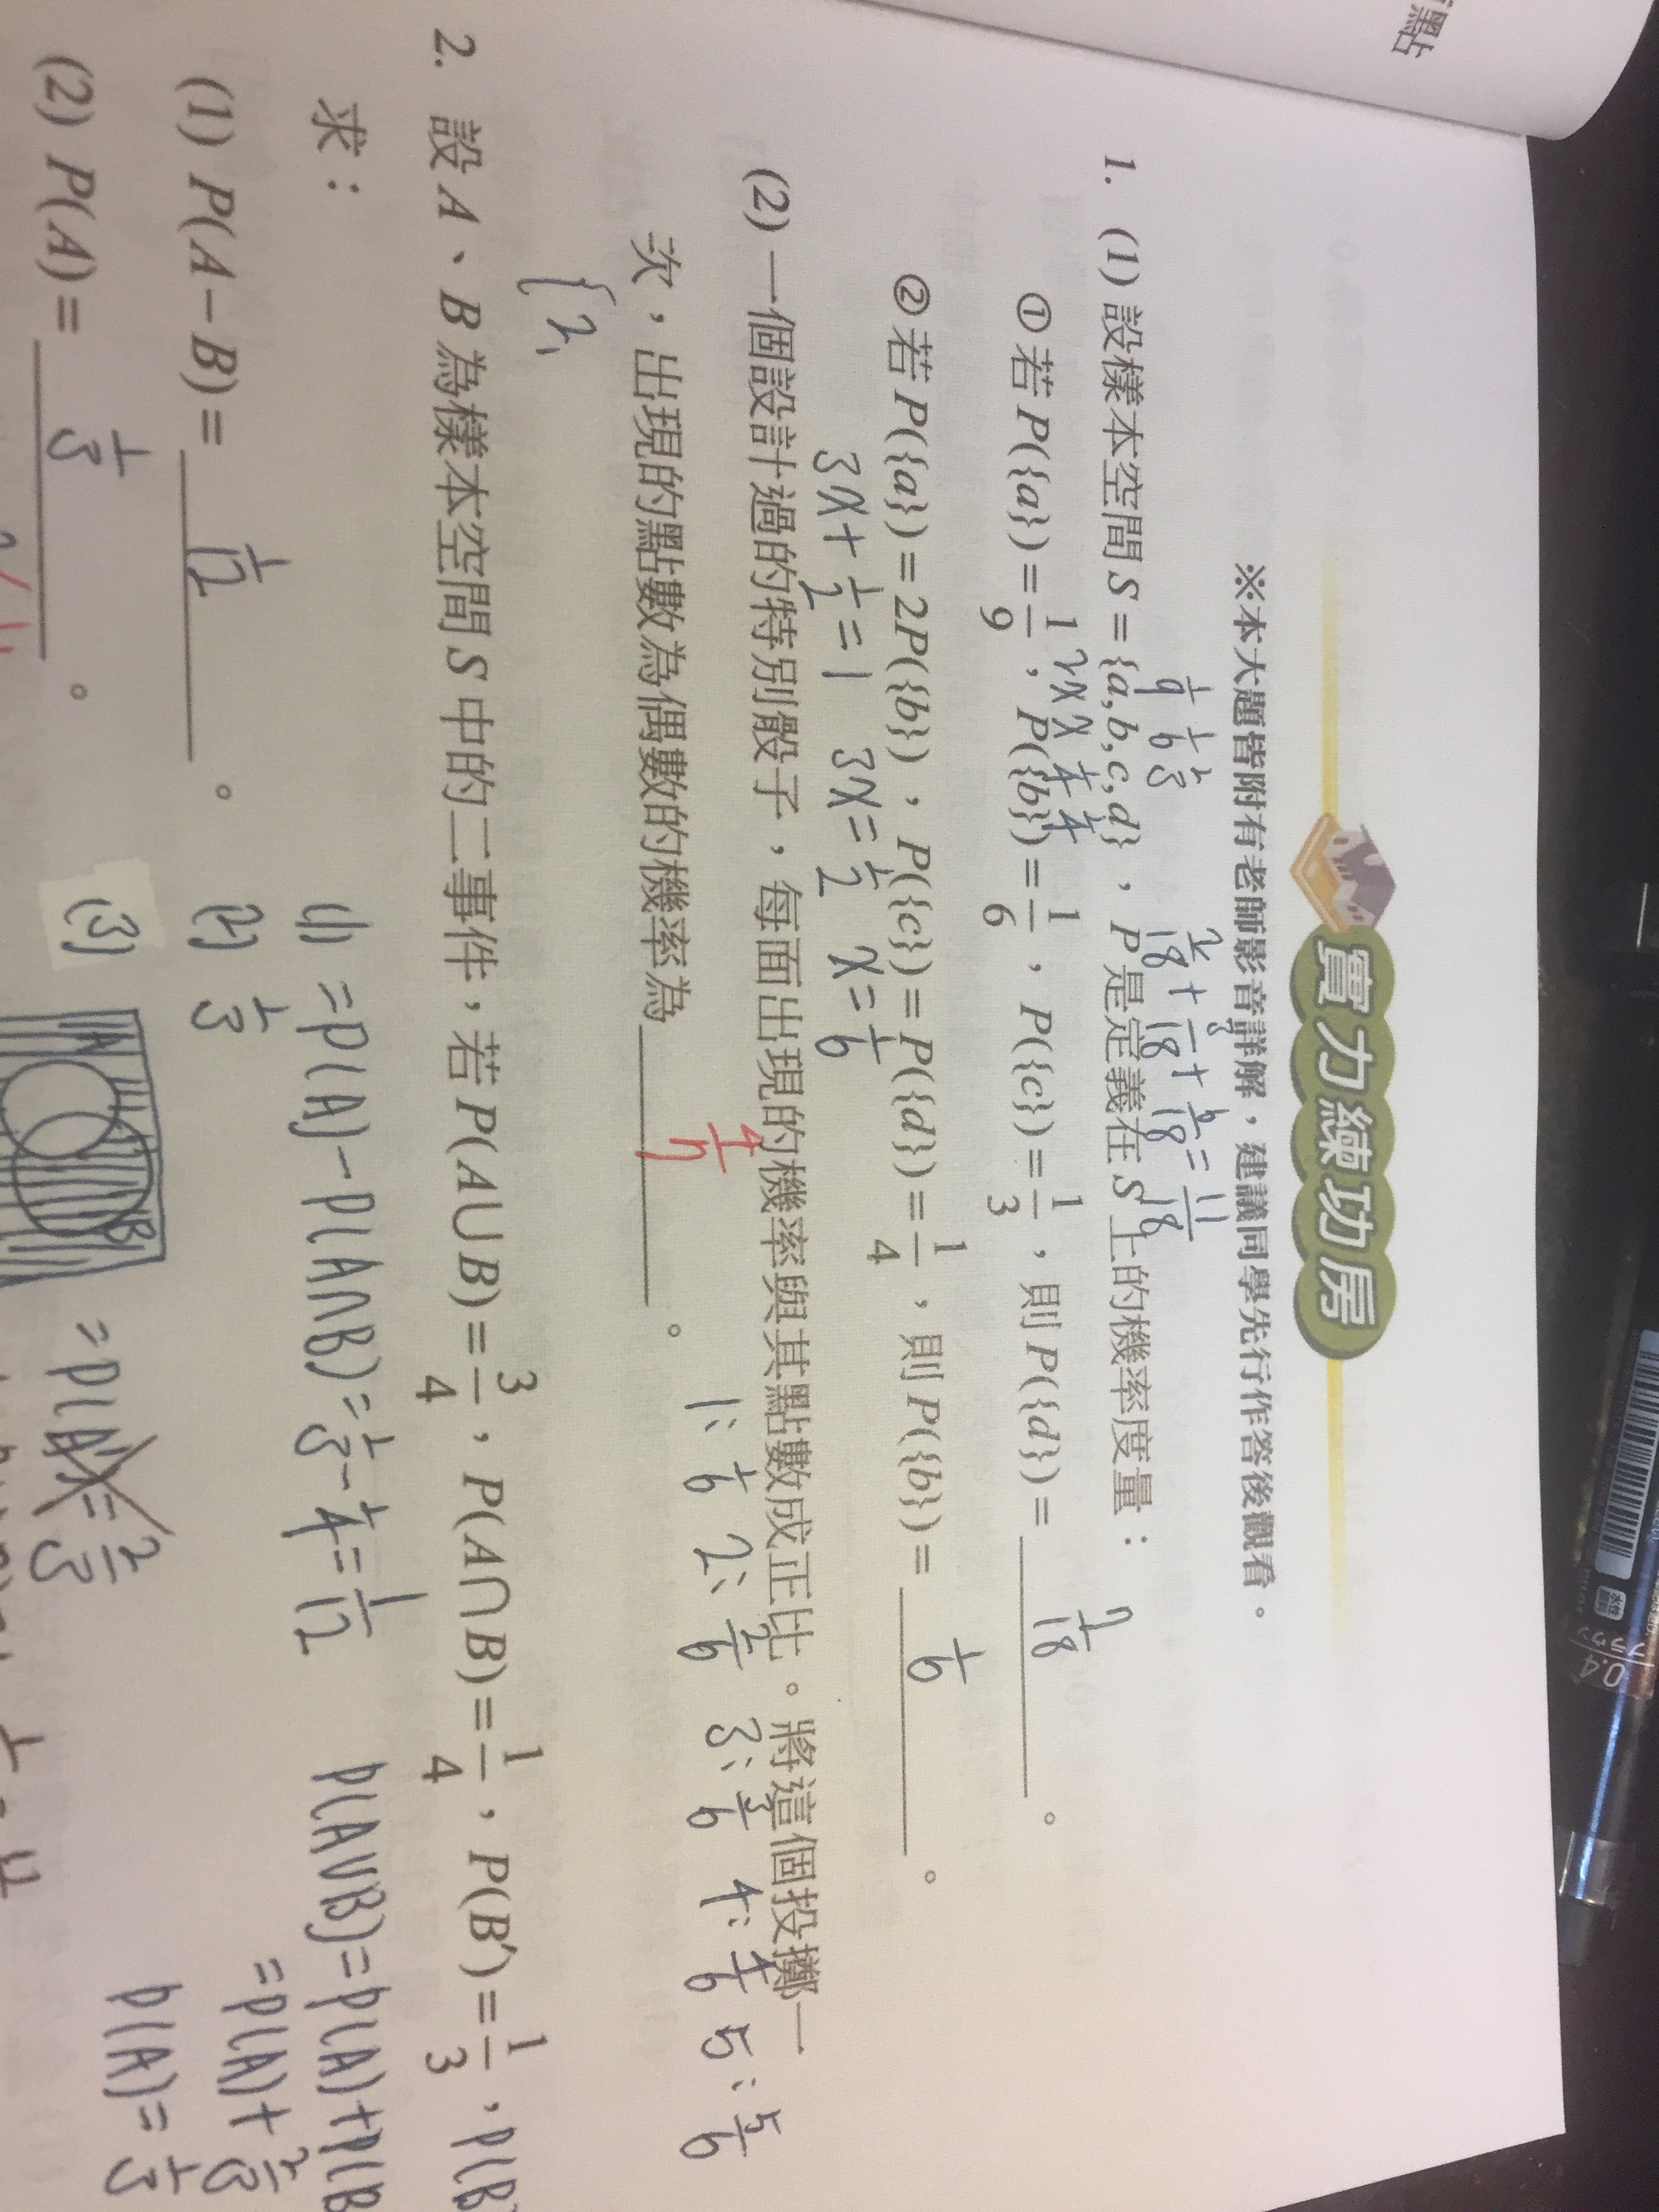 黑占
實力練功房
※本大題皆附有老師影音詳解,建議同學先行作答後觀看。
1/9 1/6 1/3
2/18 + 3/18 + 6/18 = 11/18
1. (1) 設樣本空間 S = {a,b,c,d},P 是定義在 S 上的機率度量:
2x x 1/4 1/4
① 若 P({a}) = 1/9,P({b}) = 1/6,P({c}) = 1/3,則 P({d}) = 7/18。
② 若 P({a}) = 2P({b}),P({c}) = P({d}) = 1/4,則 P({b}) = 1/6。
3x + 1/2 = 1 3x = 1/2 x = 1/6
(2) 一個設計過的特別骰子,每面出現的機率與其點數成正比。將這個投擲一
次,出現的點數為偶數的機率為 4/7。
1: 1/6 2: 2/6 3: 3/6 4: 4/6 5: 5/6
{2,
2. 設 A、B 為樣本空間 S 中的二事件,若 P(A∪B) = 3/4,P(A∩B) = 1/4,P(B') = 1/3,P(B
求:
(1) = P(A) - P(A∩B) = 1/3 - 1/4 = 1/12
P(A∪B) = P(A) + P(B
(1) P(A-B) = 1/12。
(2) 1/3
= P(A) + 2/3
(2) P(A) = 1/3。
(3)
A B
= P(A') = 2/3
P(A) = 1/3